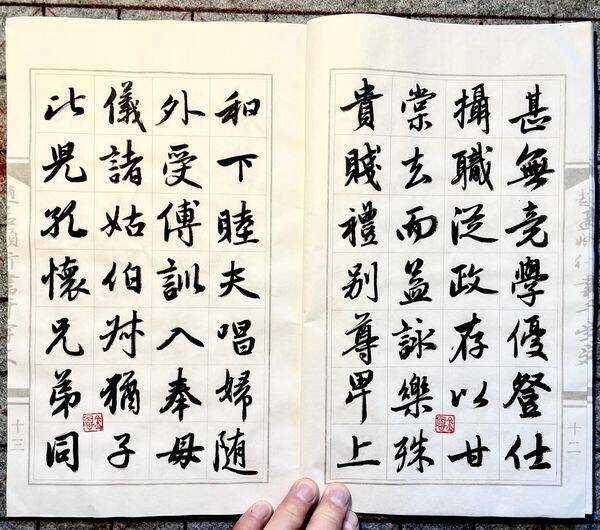 甚無竟學優登仕
攝職從政存以甘
棠去而益詠樂殊
貴賤禮别尊卑上
趙孟頫行書千字文
十二
和下睦夫唱婦随
外受傅訓入奉母
儀諸姑伯叔猶子
比兒孔懷兄弟同
十三